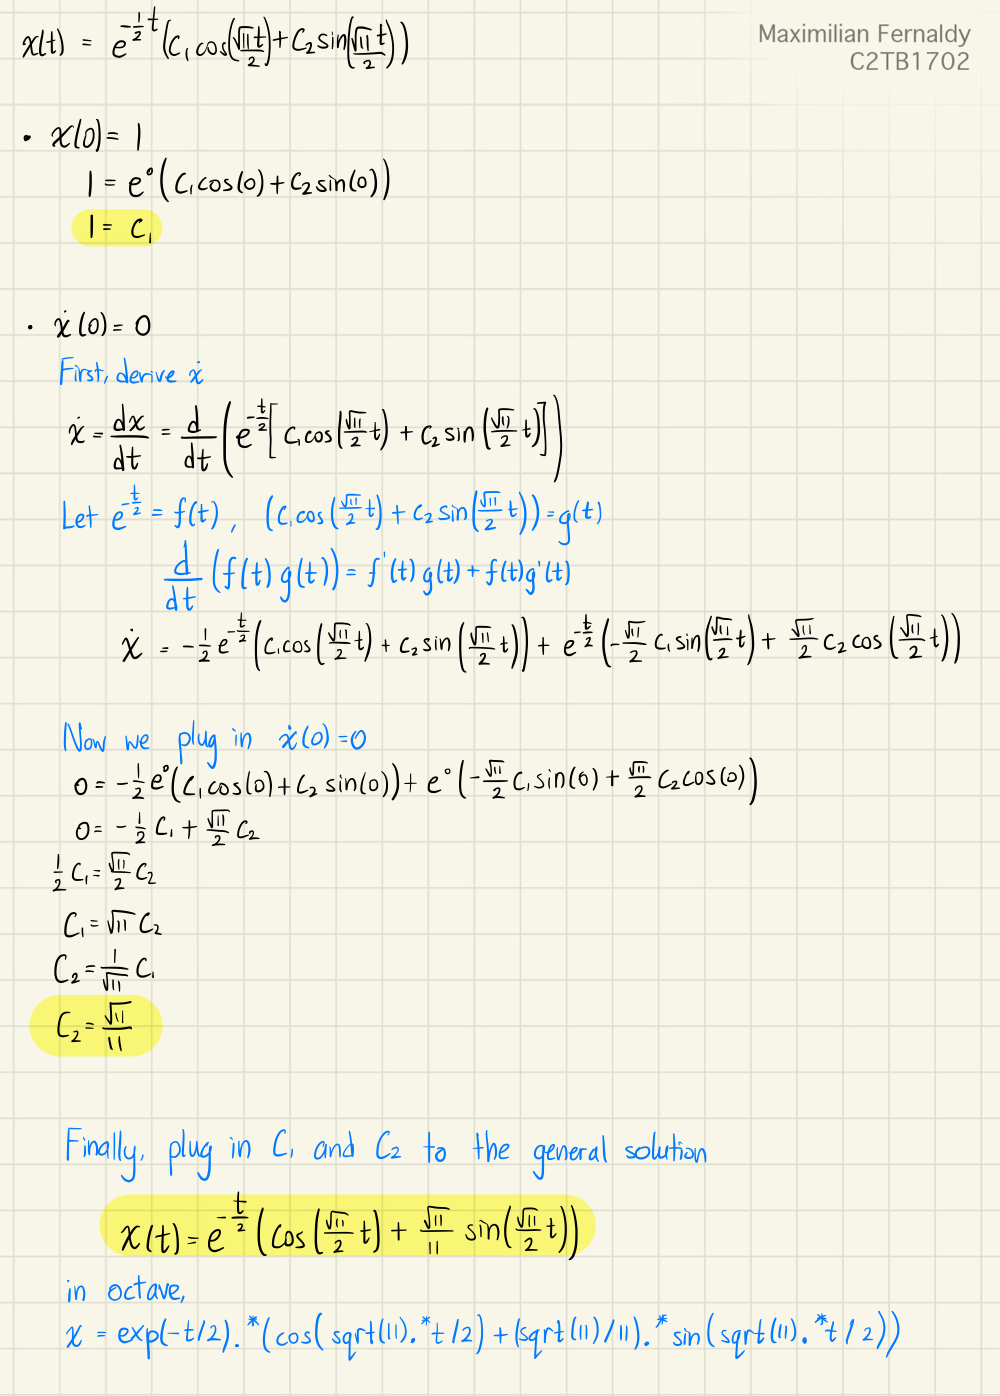 x(t) = e^{-\frac{1}{2}t}(C₁cos(\frac{√11t}{2})+C₂sin(\frac{√11t}{2}))
Maximian Fernaldy
C2TB1702
• x(0) = 1
1 = e⁰(C₁cos(0)+C₂sin(0))
1 = C₁
• ẋ(0) = 0
First, derive ẋ
ẋ = \frac{dx}{dt} = \frac{d}{dt}(e^{-\frac{t}{2}}[C₁cos(\frac{√11}{2}t) + C₂sin(\frac{√11}{2}t)])
Let e^{-\frac{t}{2}} = f(t), (C₁cos(\frac{√11}{2}t) + C₂sin(\frac{√11}{2}t)) = g(t)
\frac{d}{dt}(f(t)g(t)) = f'(t)g(t) + f(t)g'(t)
ẋ = -\frac{1}{2}e^{-\frac{t}{2}}(C₁cos(\frac{√11}{2}t) + C₂sin(\frac{√11}{2}t)) + e^{-\frac{t}{2}}(-\frac{√11}{2}C₁sin(\frac{√11}{2}t) + \frac{√11}{2}C₂cos(\frac{√11}{2}t))
Now we plug in ẋ(0)=0
0 = -\frac{1}{2}e⁰(C₁cos(0)+C₂sin(0)) + e⁰(-\frac{√11}{2}C₁sin(0) + \frac{√11}{2}C₂cos(0))
0 = -\frac{1}{2}C₁ + \frac{√11}{2}C₂
\frac{1}{2}C₁ = \frac{√11}{2}C₂
C₁ = √11 C₂
C₂ = \frac{1}{√11}C₁
C₂ = \frac{√11}{11}
Finally, plug in C₁ and C₂ to the general solution
x(t) = e^{-\frac{t}{2}}(cos(\frac{√11}{2}t) + \frac{√11}{11}sin(\frac{√11}{2}t))
in octave,
x = exp(-t/2).*(cos(sqrt(11).*t/2)+(sqrt(11)/11).*sin(sqrt(11).*t/2))